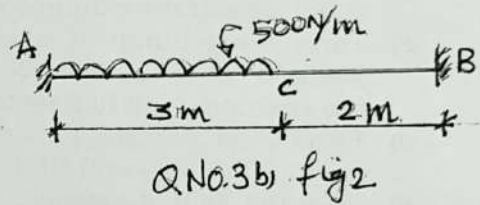 500N/m
A
B
C
3m
2m
QNO.3b) fig2